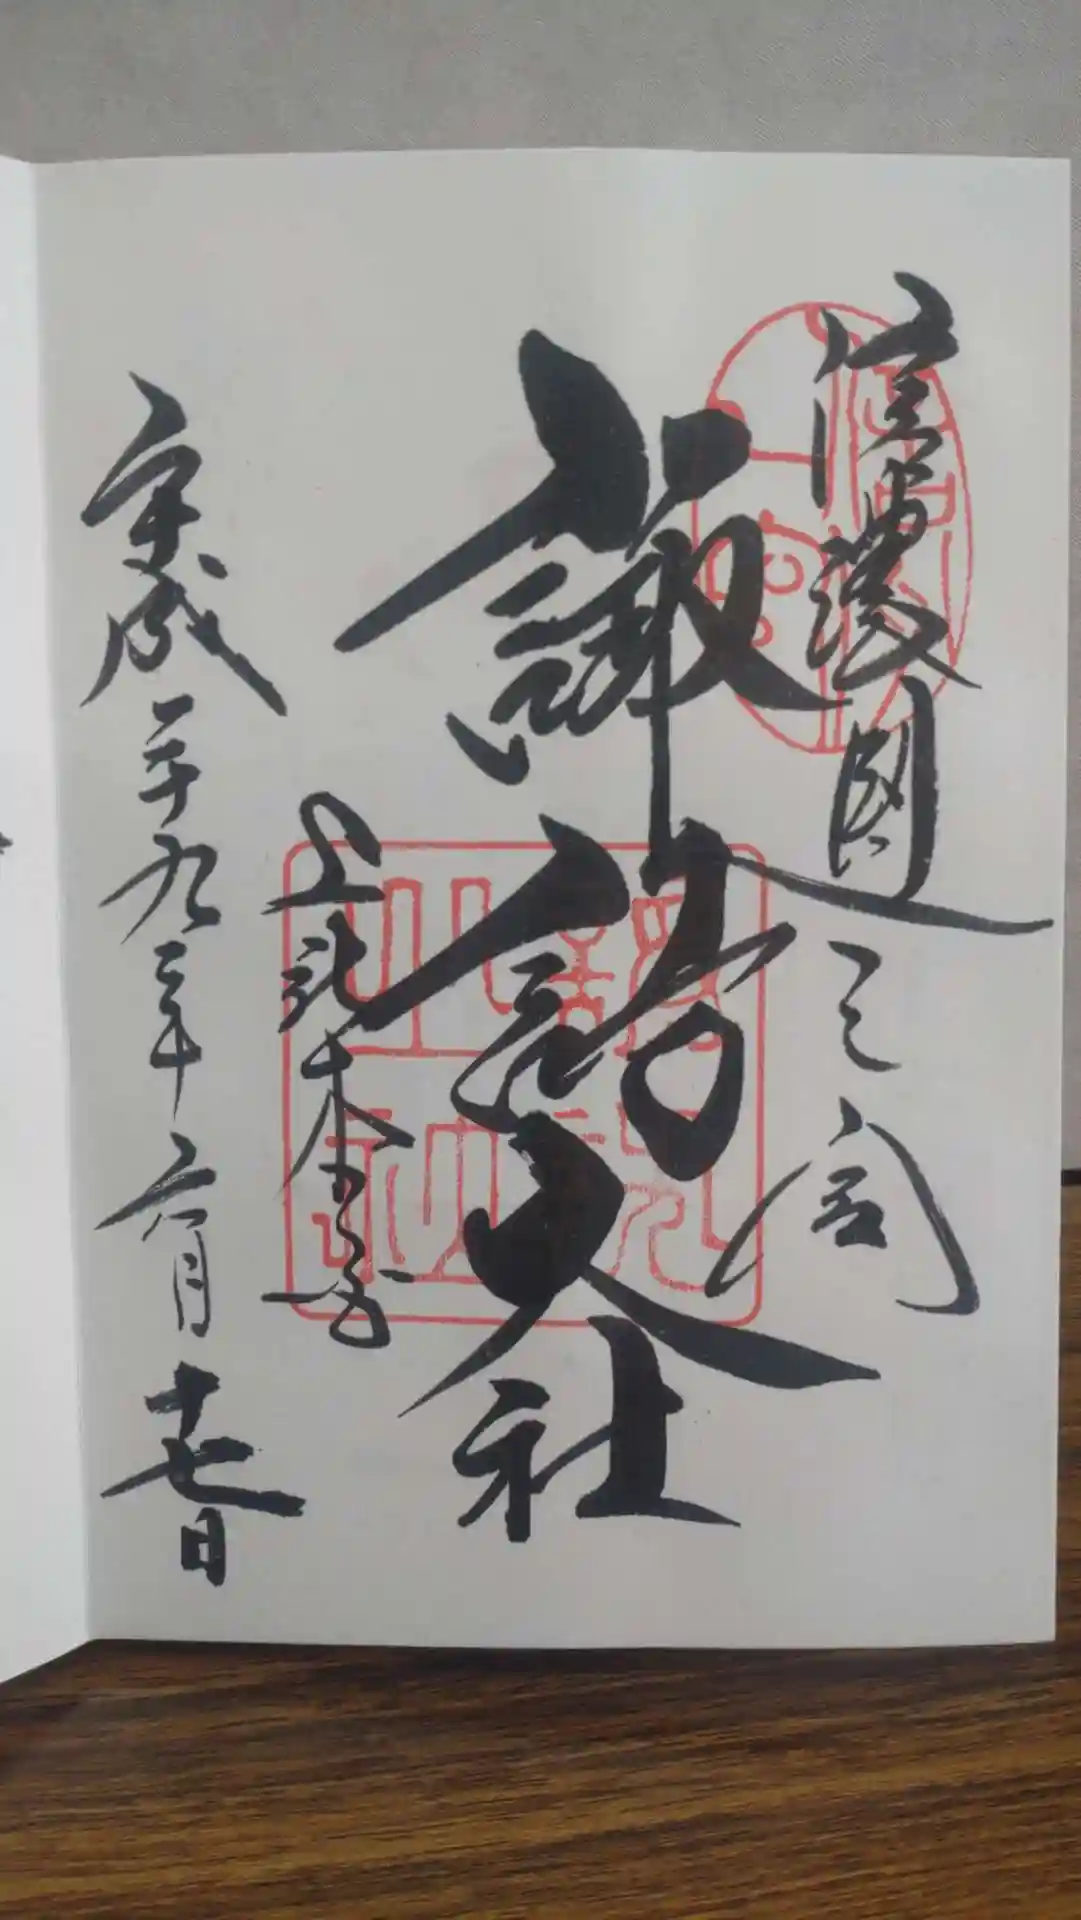 信濃國一之宮
諏訪大社
上社本宮
平成二十九年六月十七日